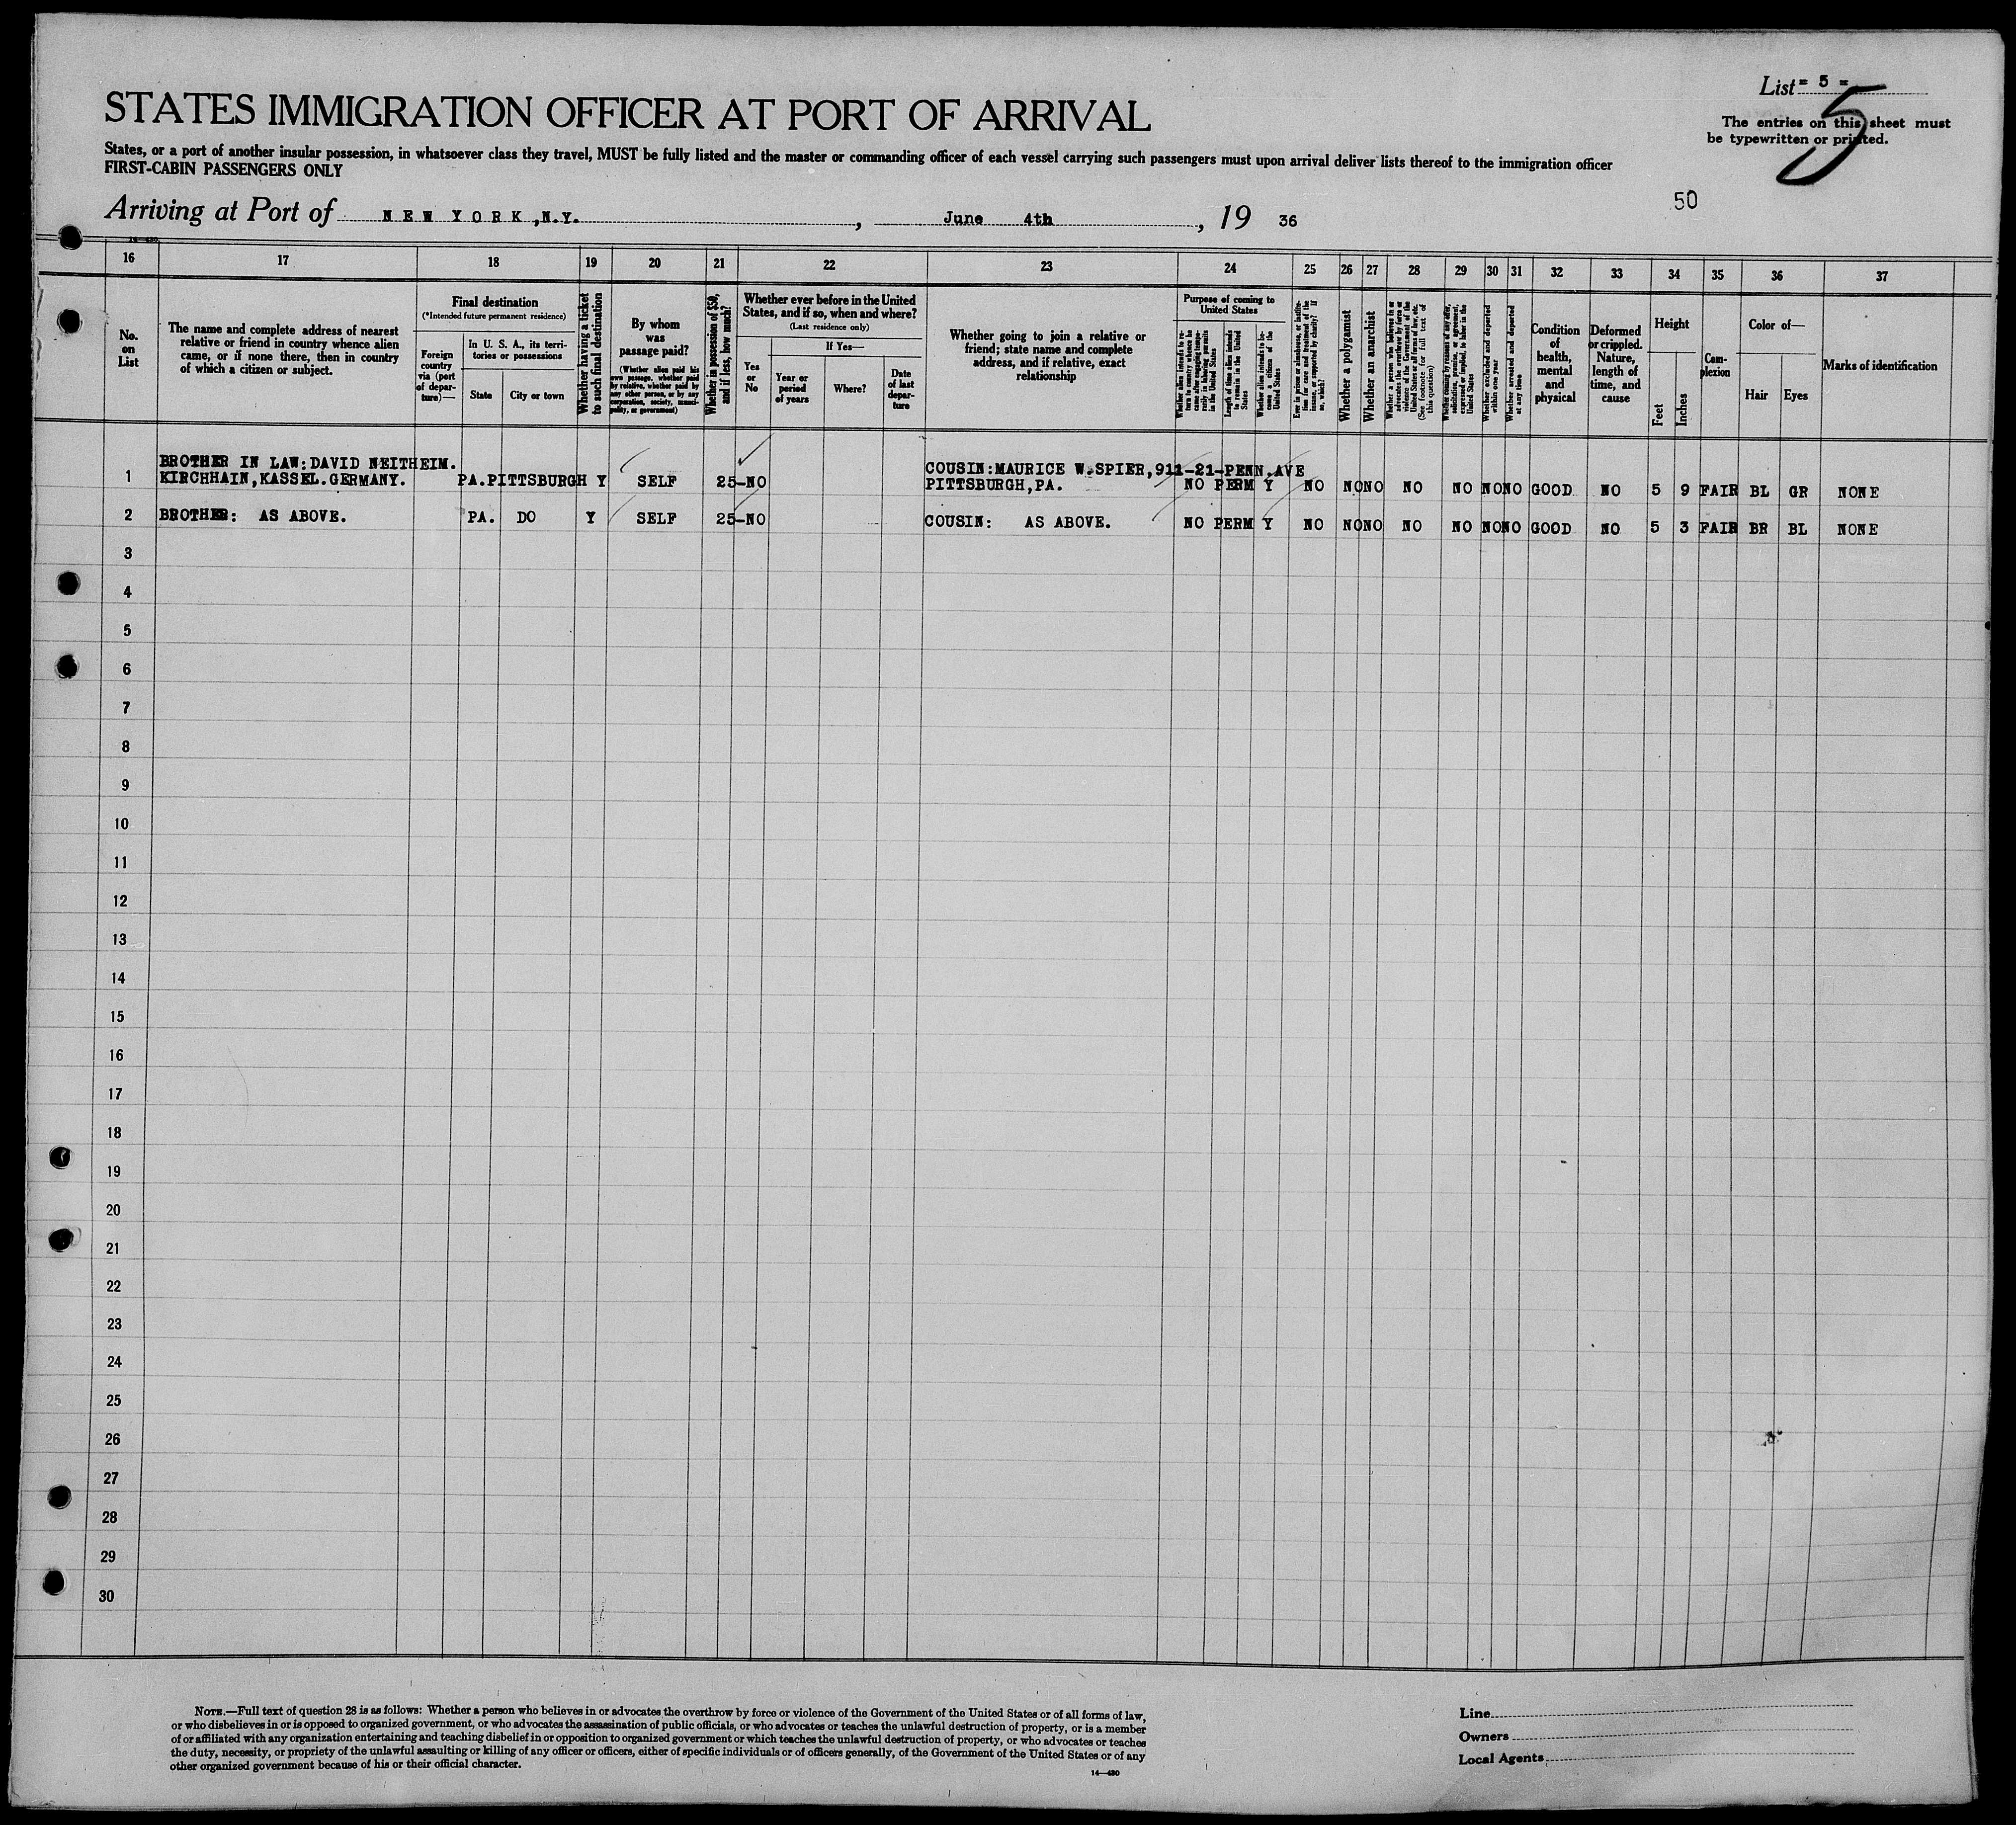 List = 5 =
5
STATES IMMIGRATION OFFICER AT PORT OF ARRIVAL
The entries on this sheet must
be typewritten or printed.
States, or a port of another insular possession, in whatsoever class they travel, MUST be fully listed and the master or commanding officer of each vessel carrying such passengers must upon arrival deliver lists thereof to the immigration officer
FIRST-CABIN PASSENGERS ONLY
50
Arriving at Port of NEW YORK, N.Y., June 4th, 19 36
16 17 18 19 20 21 22 23 24 25 26 27 28 29 30 31 32 33 34 35 36 37
No. on List
The name and complete address of nearest
relative or friend in country whence alien
came, or if none there, then in country
of which a citizen or subject.
Final destination
(*Intended future permanent residence)
Foreign country via (port of departure)—
In U. S. A., its territories or possessions
State
City or town
Whether having a ticket to such final destination
By whom was passage paid?
(Whether alien paid his own passage, whether paid by relative, whether paid by any other person, or by any corporation, society, municipality, or government)
Whether in possession of $50, and if less, how much?
Whether ever before in the United
States, and if so, when and where?
(Last residence only)
Yes or No
If Yes—
Year or period of years
Where?
Date of last departure
Whether going to join a relative or
friend; state name and complete
address, and if relative, exact
relationship
Purpose of coming to
United States
Whether alien intends to return to country whence he came after engaging temporarily in laboring pursuits in the United States
Length of time alien intends to remain in the United States
Whether alien intends to become a citizen of the United States
Ever in prison or almshouse, or institution for care and treatment of the insane, or supported by charity? If so, which?
Whether a polygamist
Whether an anarchist
Whether a person who believes in or advocates the overthrow by force or violence of the Government of the United States or all forms of law, etc. (See footnote for full text of this question)
Whether coming by reason of any offer, solicitation, promise, or agreement, expressed or implied, to labor in the United States
Whether excluded and deported within one year
Whether arrested and deported at any time
Condition of health, mental and physical
Deformed or crippled. Nature, length of time, and cause
Height
Feet
Inches
Complexion
Color of—
Hair
Eyes
Marks of identification
BROTHER IN LAW: DAVID NEITHEIM. COUSIN: MAURICE W. SPIER, 911-21-PENN. AVE
1 KIRCHHAIN, KASSEL. GERMANY. PA. PITTSBURGH Y SELF 25-NO PITTSBURGH, PA. NO PERM Y NO NO NO NO NO NO NO GOOD NO 5 9 FAIR BL GR NONE
2 BROTHER: AS ABOVE. PA. DO Y SELF 25-NO COUSIN: AS ABOVE. NO PERM Y NO NO NO NO NO NO NO GOOD NO 5 3 FAIR BR BL NONE
3
4
5
6
7
8
9
10
11
12
13
14
15
16
17
18
19
20
21
22
23
24
25
26
27
28
29
30
NOTE.—Full text of question 28 is as follows: Whether a person who believes in or advocates the overthrow by force or violence of the Government of the United States or of all forms of law,
or who disbelieves in or is opposed to organized government, or who advocates the assassination of public officials, or who advocates or teaches the unlawful destruction of property, or is a member
of or affiliated with any organization entertaining and teaching disbelief in or opposition to organized government or which teaches the unlawful destruction of property, or who advocates or teaches
the duty, necessity, or propriety of the unlawful assaulting or killing of any officer or officers, either of specific individuals or of officers generally, of the Government of the United States or of any
other organized government because of his or their official character.
14—430
Line
Owners
Local Agents